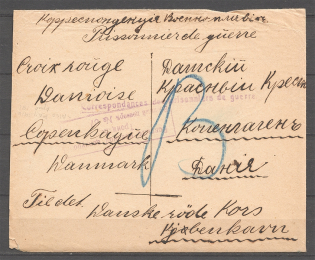 Корреспонденція Военно-плѣн
Prisonnier de guerre
Croix rouge
Danoise
Copenhague
Danmark
Датскій
Красный Крестъ
Копенгагенъ
Данія
Correspondance des prisonniers de guerre
Til det
Danske röde Kors
Kjøbenhavn